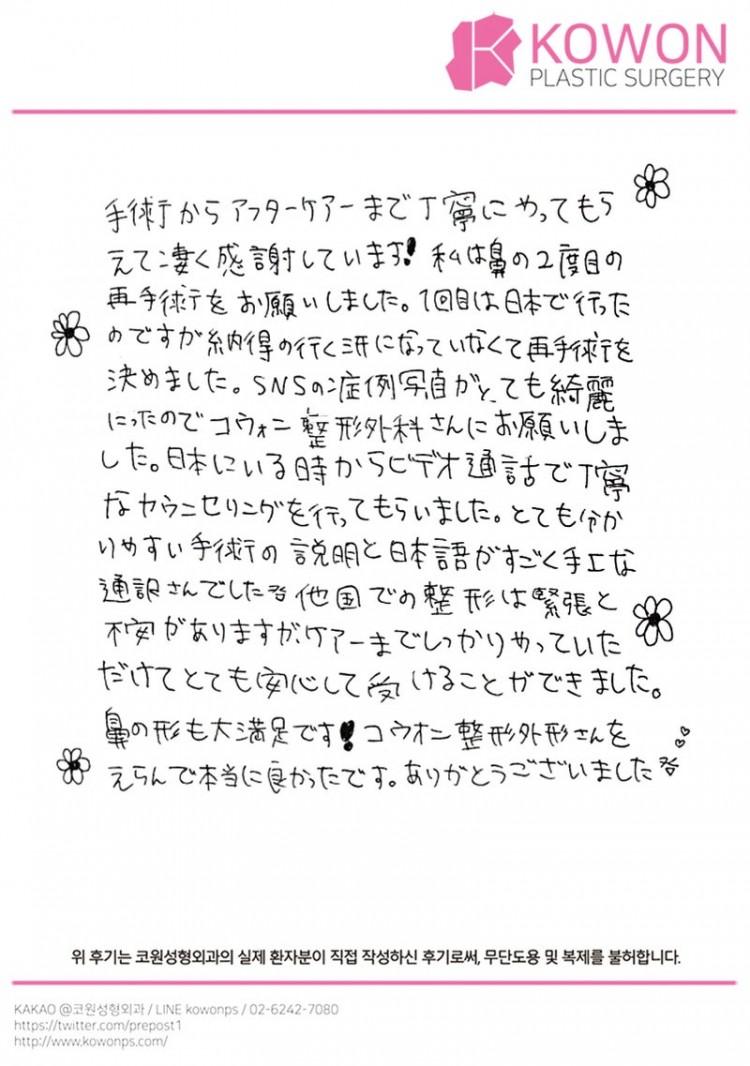 KOWON
PLASTIC SURGERY
手術からアフターケアーまで丁寧にやってもら
えて凄く感謝しています! 私は鼻の2度目の
再手術をお願いしました。1回目は日本で行った
のですが納得の行く形になっていなくて再手術を
決めました。SNSの症例写真がとても綺麗
だったのでコウォン整形外科さんにお願いしま
した。日本にいる時からビデオ通話で丁寧
なカウンセリングを行ってもらいました。とても分か
りやすい手術の説明と日本語がすごく手工な
通訳さんでした 他国での整形は緊張と
不安がありますが、ケアーまでしっかりやっていた
だけてとても安心して受けることができました。
鼻の形も大満足です! コウオン整形外形さんを
えらんで本当に良かったです。ありがとうございました
위 후기는 코원성형외과의 실제 환자분이 직접 작성하신 후기로써, 무단도용 및 복제를 불허합니다.
KAKAO @코원성형외과 / LINE kowonps / 02-6242-7080
https://twitter.com/prepost1
http://www.kowonps.com/